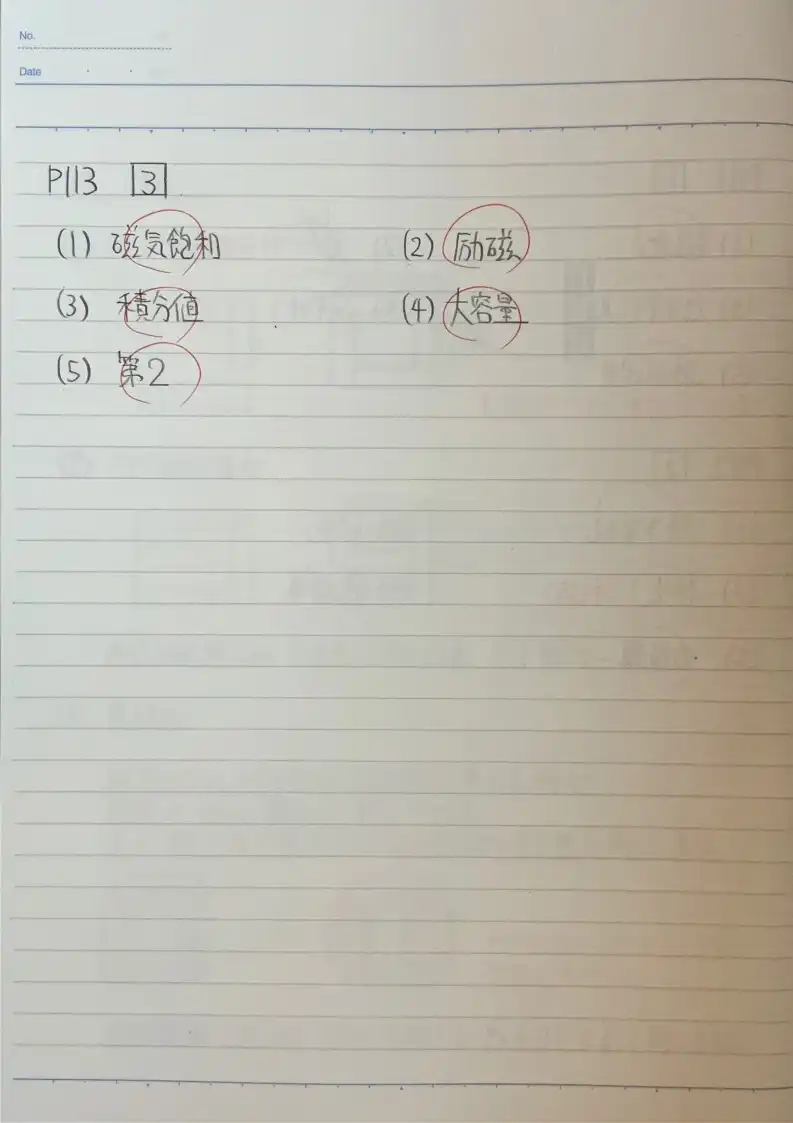 No.
Date
P113 3
(1) 磁気飽和 (2) 励磁
(3) 積分値 (4) 大容量
(5) 第2